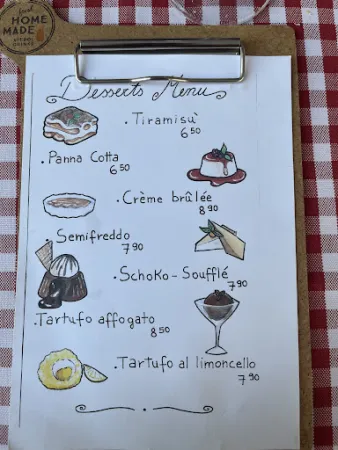 HOME
MADE
Desserts Menu
. Tiramisù
6.50
. Panna Cotta
6.50
. Crème brûlée
8.90
Semifreddo
7.90
. Schoko-Soufflé
7.90
. Tartufo affogato
8.50
. Tartufo al limoncello
7.90